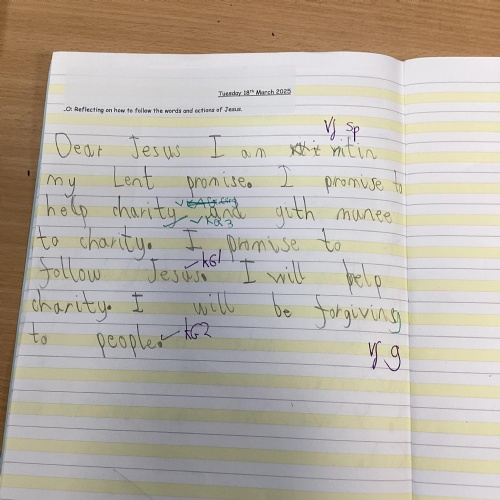 Tuesday 18th March 2025
.O: Reflecting on how to follow the words and actions of Jesus.
VJ Sp
Dear Jesus I am ritin
my Lent promise. I promise to
help charity and gith munee
✓ KG3
to charity. I promise to
✓ KG1
follow Jesus. I will help
charity. I will be forgiving
to people. ✓ KG2
VJ g